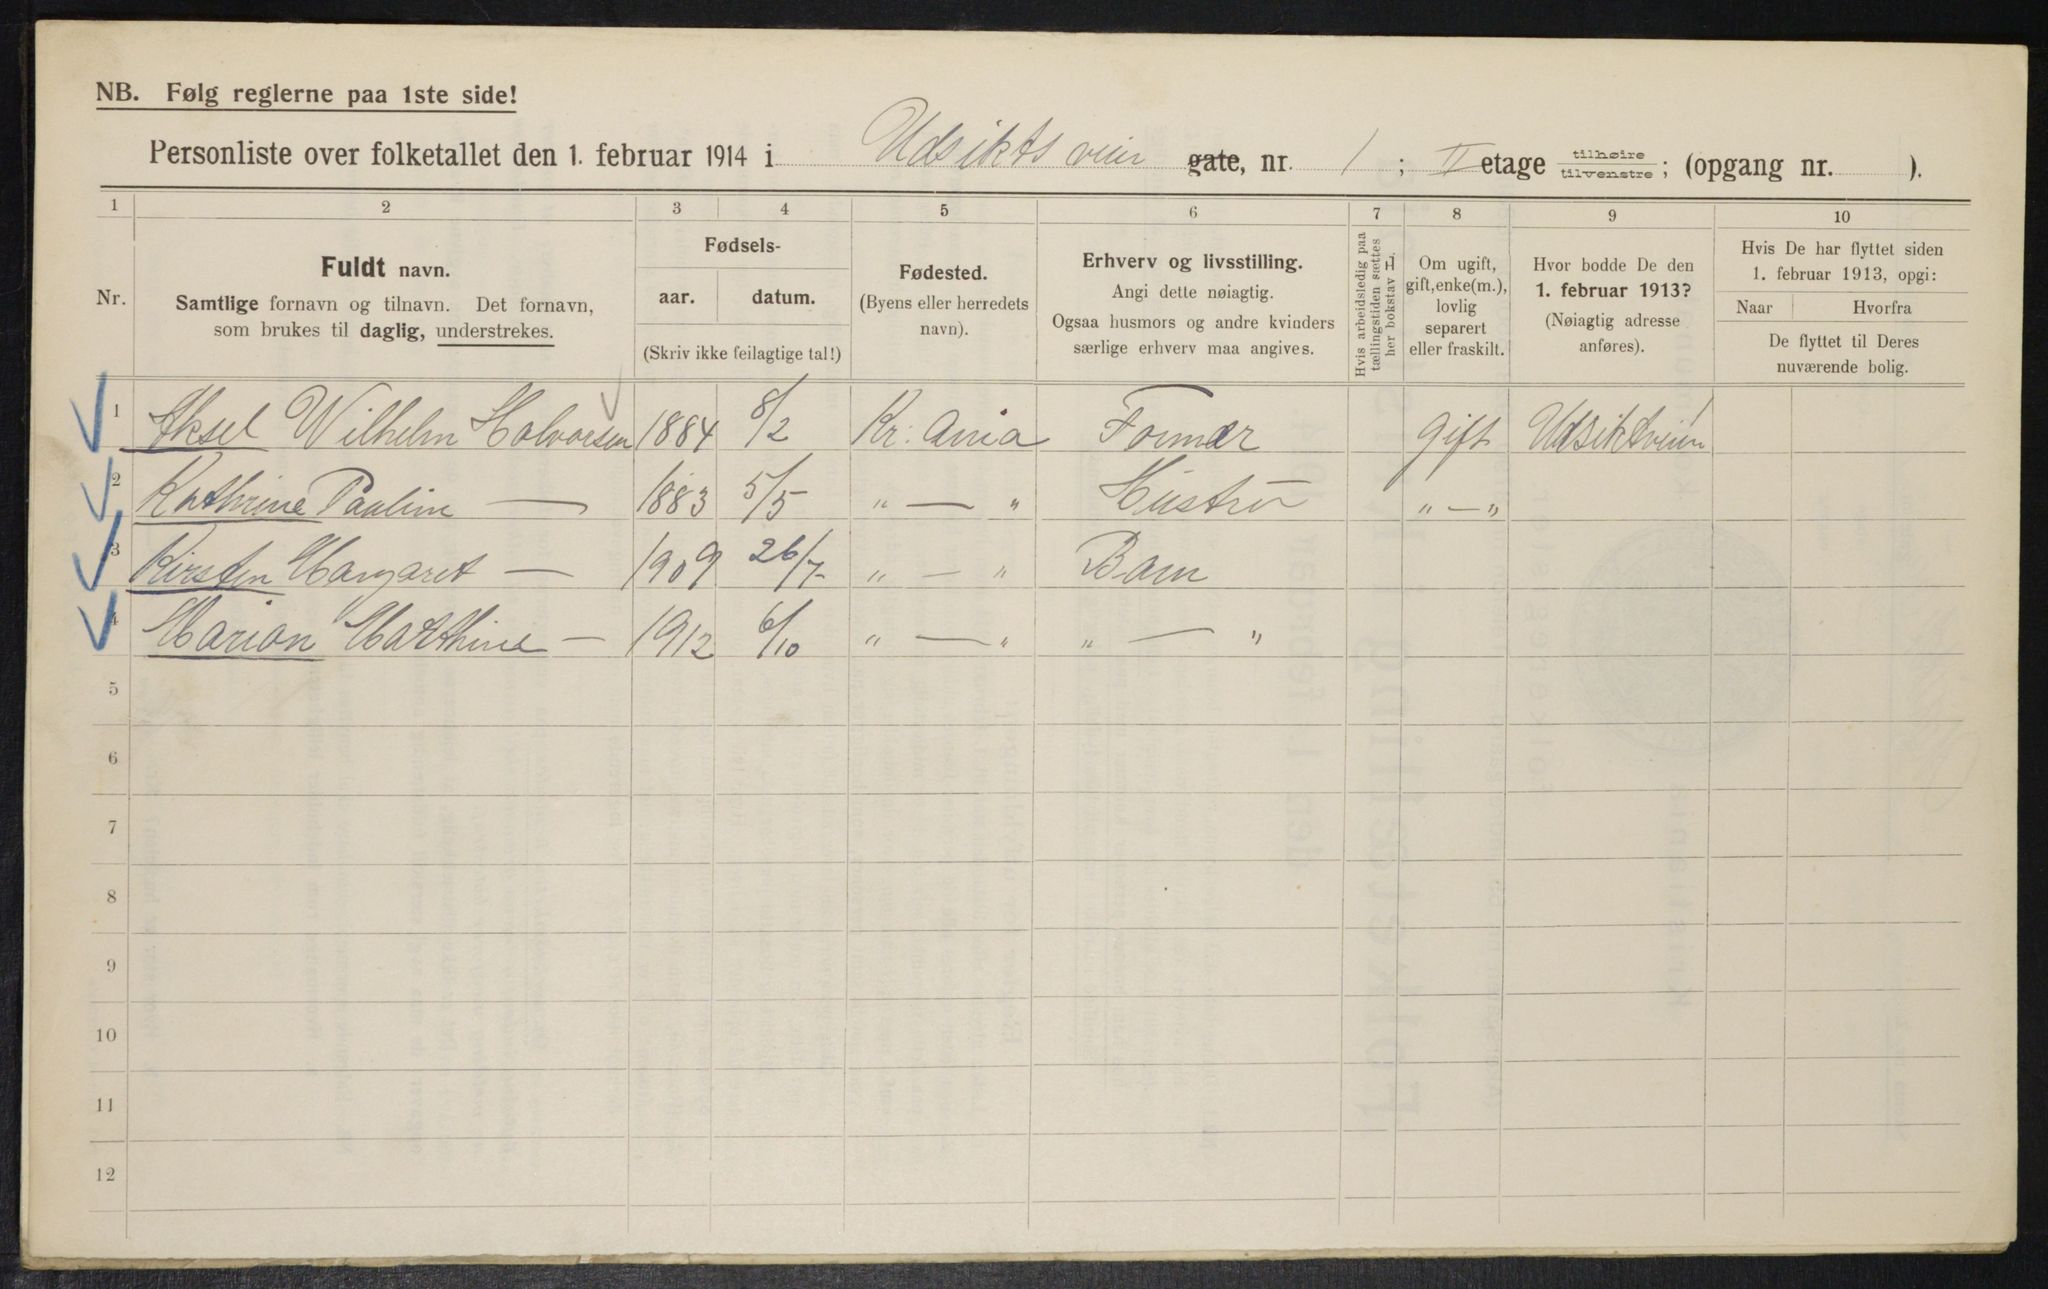 NB. Følg reglerne paa 1ste side!
Personliste over folketallet den 1. februar 1914 i Udsikts veien gate, nr. 1 ; II etage tilhøire tilvenstre ; (opgang nr. ).
1 2 3 4 5 6 7 8 9 10
Nr.
Fuldt navn.
Samtlige fornavn og tilnavn. Det fornavn,
som brukes til daglig, understrekes.
Fødsels-
aar. datum.
(Skriv ikke feilagtige tal!)
Fødested.
(Byens eller herredets
navn).
Erhverv og livsstilling.
Angi dette nøiagtig.
Ogsaa husmors og andre kvinders
særlige erhverv maa angives.
Hvis arbeidsledig paa
tællingstiden sættes
her bokstav L.
Om ugift,
gift, enke(m.),
lovlig
separert
eller fraskilt.
Hvor bodde De den
1. februar 1913?
(Nøiagtig adresse
anføres).
Hvis De har flyttet siden
1. februar 1913, opgi:
Naar Hvorfra
De flyttet til Deres
nuværende bolig.
1 Aksel Wilhelm Halvorsen 1884 8/2 Kr: ania Former gift Udsiktveien 1
2 Kathrine Pauline — 1883 5/5 " — " Hustru " — "
3 Kirsten Margaret — 1909 26/7 " — " Barn
4 Marion Marthine — 1912 6/10 " — " " — "
5
6
7
8
9
10
11
12